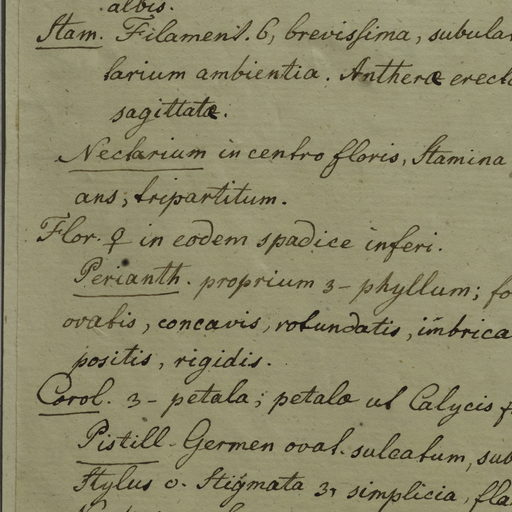 albis.
Stam. Filament. 6, brevissima, subular
larium ambientia. Antheræ erecta
sagittatæ.
Nectarium in centro floris, Stamina
ans; tripartitum.
Flor. ♀ in eodem spadice inferi.
Perianth. proprium 3-phyllum; fo
ovatis, concavis, rotundatis, imbrica
positis, rigidis.
Corol. 3-petala; petala ut Calycis f
Pistill. Germen ovat. sulcatum, sub
Stylus 0. Stigmata 3, simplicia, fla